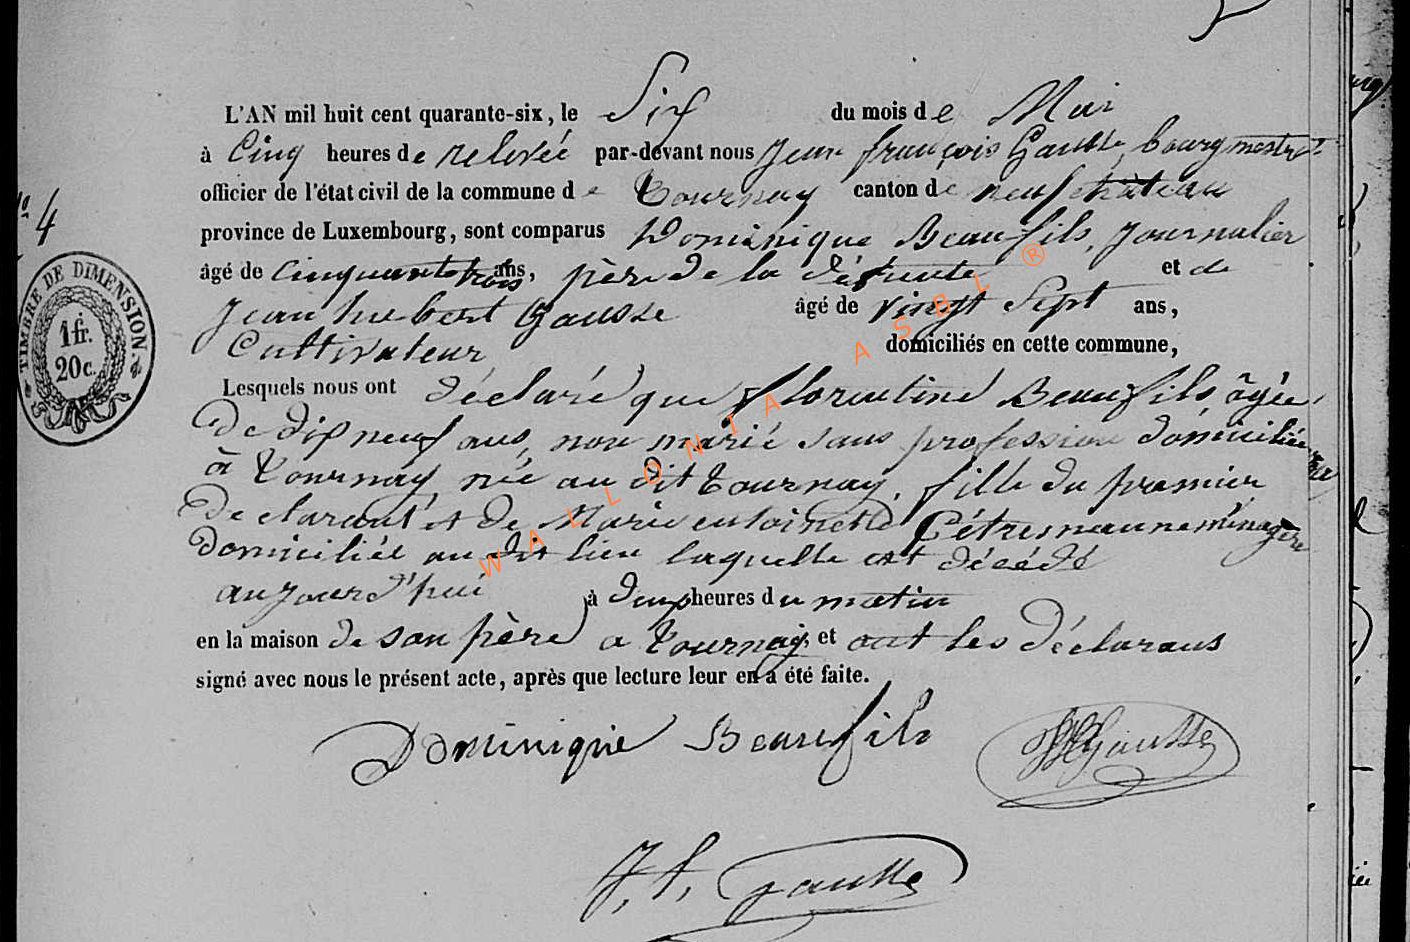 L'AN mil huit cent quarante-six, le Six du mois de Mai
à Cinq heures de relevée par-devant nous Jean françois Gausse bourgmestre
officier de l'état civil de la commune de Tournay canton de neufchâteau
province de Luxembourg, sont comparus Dominique Beaufils, Journalier
N° 4
âgé de Cinquante trois ans, père de la défunte et de
Jean hubert Gausse âgé de vingt Sept ans,
Cultivateur domiciliés en cette commune,
TIMBRE DE DIMENSION
1 fr.
20 c.
Lesquels nous ont déclaré que florentine Beaufils âgée
De dix neuf ans, non marié sans profession domiciliée
à Tournay née au dit Tournay, fille du premier
Declarant et de Marie entoinette ménagère
domiciliée au dit lieu laquelle est décédé
aujourd'hui à deux heures du matin
en la maison de son père a Tournay, et ont les déclarans
signé avec nous le présent acte, après que lecture leur en a été faite.
Dominique Beaufils
JHGausse
J, f, Gausse
WALLONIA ASBL ®